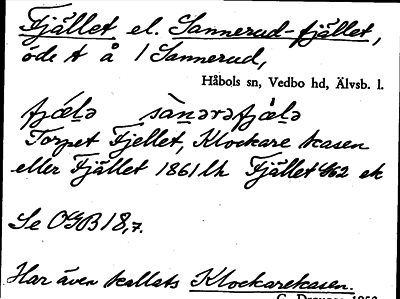 Fjället el. Sannerud-fjället,
öde t å 1 Sannerud,
Håbols sn, Vedbo hd, Älvsb. l.
fjǽlə sànərəfjælə
Torpet Fjellet, Klockare kasen
eller Fjället 1861 lh Fjället 62 ek
Se OGB 18,7.
Har även kallats Klockarekasen.